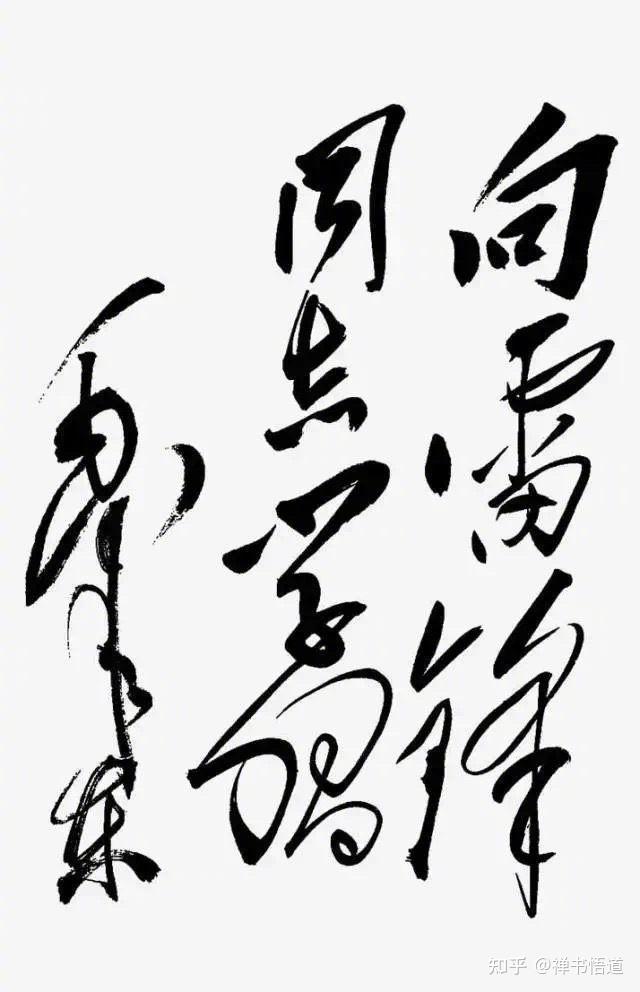 向雷锋
同志学习
毛泽东
知乎 @禅书悟道